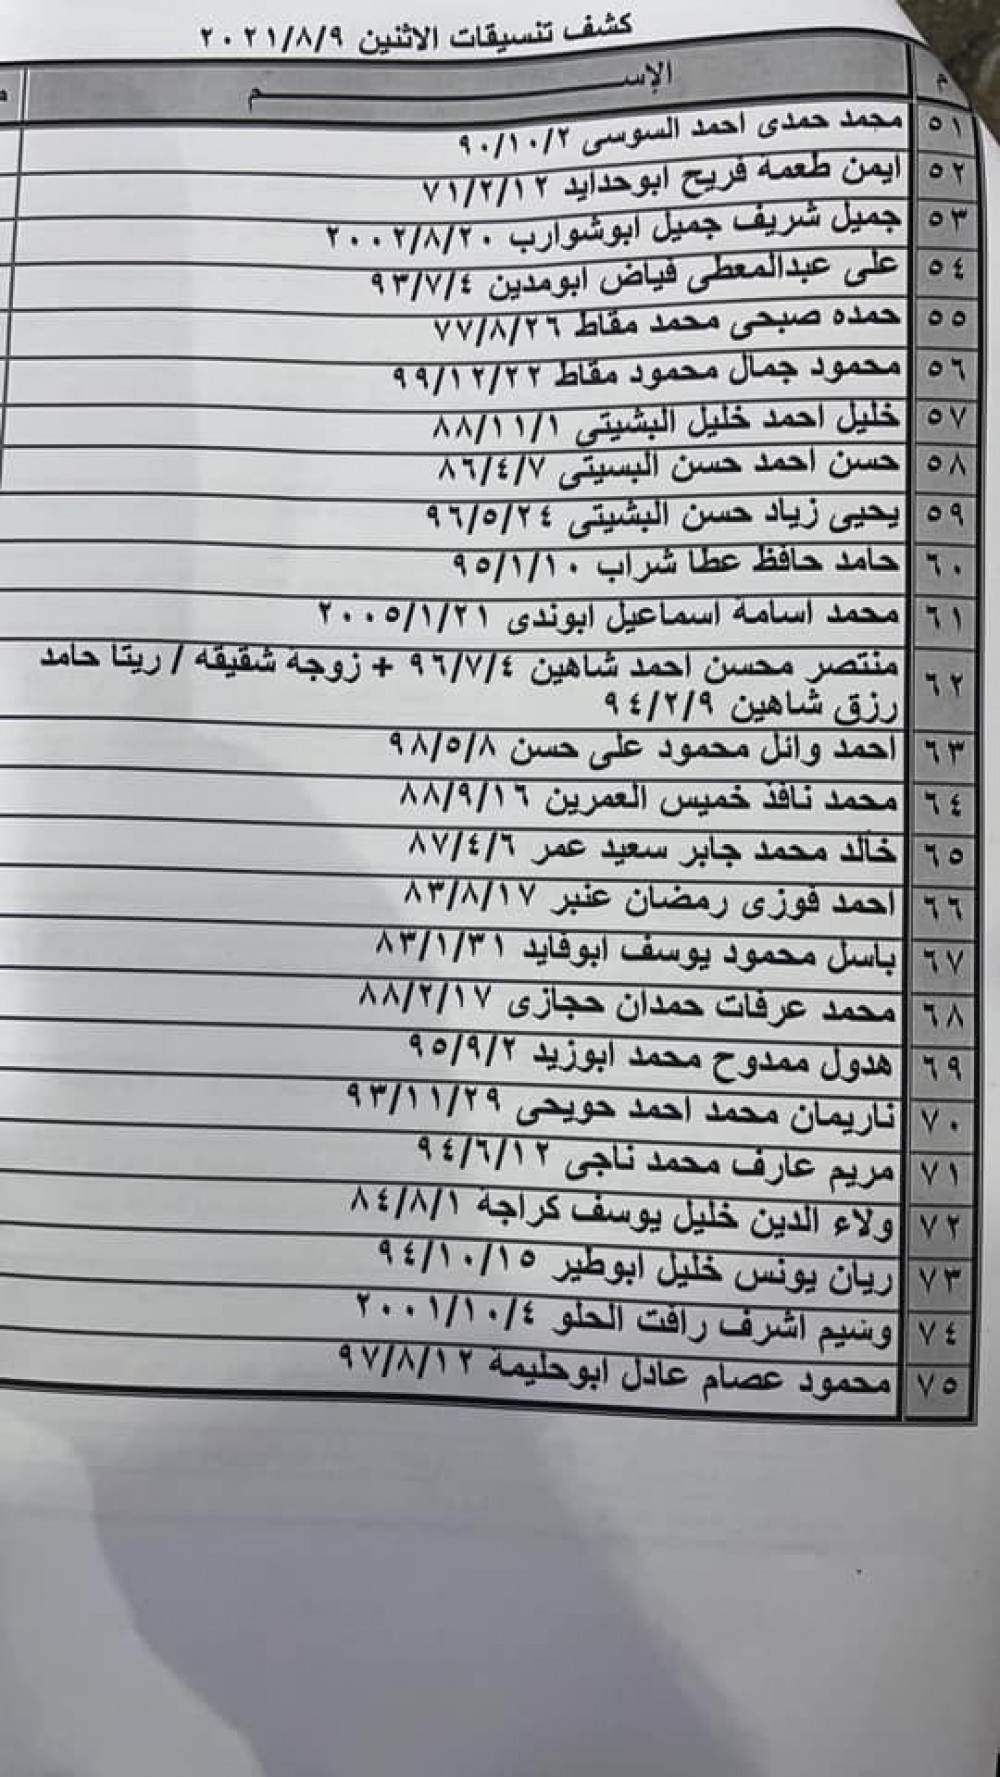 كشف تنسيقات الاثنين ٢٠٢١/٨/٩
م الإســـــــم م
٥١ محمد حمدى احمد السوسى ٩٠/١٠/٢
٥٢ ايمن طعمه فريح ابوحدايد ٧١/٢/١٢
٥٣ جميل شريف جميل ابوشوارب ٢٠٠٢/٨/٢٠
٥٤ على عبدالمعطى فياض ابومدين ٩٣/٧/٤
٥٥ حمده صبحى محمد مقاط ٧٧/٨/٢٦
٥٦ محمود جمال محمود مقاط ٩٩/١٢/٢٢
٥٧ خليل احمد خليل البشيتي ٨٨/١١/١
٥٨ حسن احمد حسن البسيتى ٨٦/٤/٧
٥٩ يحيى زياد حسن البشيتى ٩٦/٥/٢٤
٦٠ حامد حافظ عطا شراب ٩٥/١/١٠
٦١ محمد اسامة اسماعيل ابوندى ٢٠٠٥/١/٢١
٦٢ منتصر محسن احمد شاهين ٩٦/٧/٤ + زوجة شقيقه / ريتا حامد
رزق شاهين ٩٤/٢/٩
٦٣ احمد وائل محمود على حسن ٩٨/٥/٨
٦٤ محمد نافذ خميس العمرين ٨٨/٩/١٦
٦٥ خالد محمد جابر سعيد عمر ٨٧/٤/٦
٦٦ احمد فوزى رمضان عنبر ٨٣/٨/١٧
٦٧ باسل محمود يوسف ابوفايد ٨٣/١/٣١
٦٨ محمد عرفات حمدان حجازى ٨٨/٢/١٧
٦٩ هدول ممدوح محمد ابوزيد ٩٥/٩/٢
٧٠ ناريمان محمد احمد حويحى ٩٣/١١/٢٩
٧١ مريم عارف محمد ناجى ٩٤/٦/١٢
٧٢ ولاء الدين خليل يوسف كراجة ٨٤/٨/١
٧٣ ريان يونس خليل ابوطير ٩٤/١٠/١٥
٧٤ وسيم اشرف رافت الحلو ٢٠٠١/١٠/٤
٧٥ محمود عصام عادل ابوحليمة ٩٧/٨/١٢